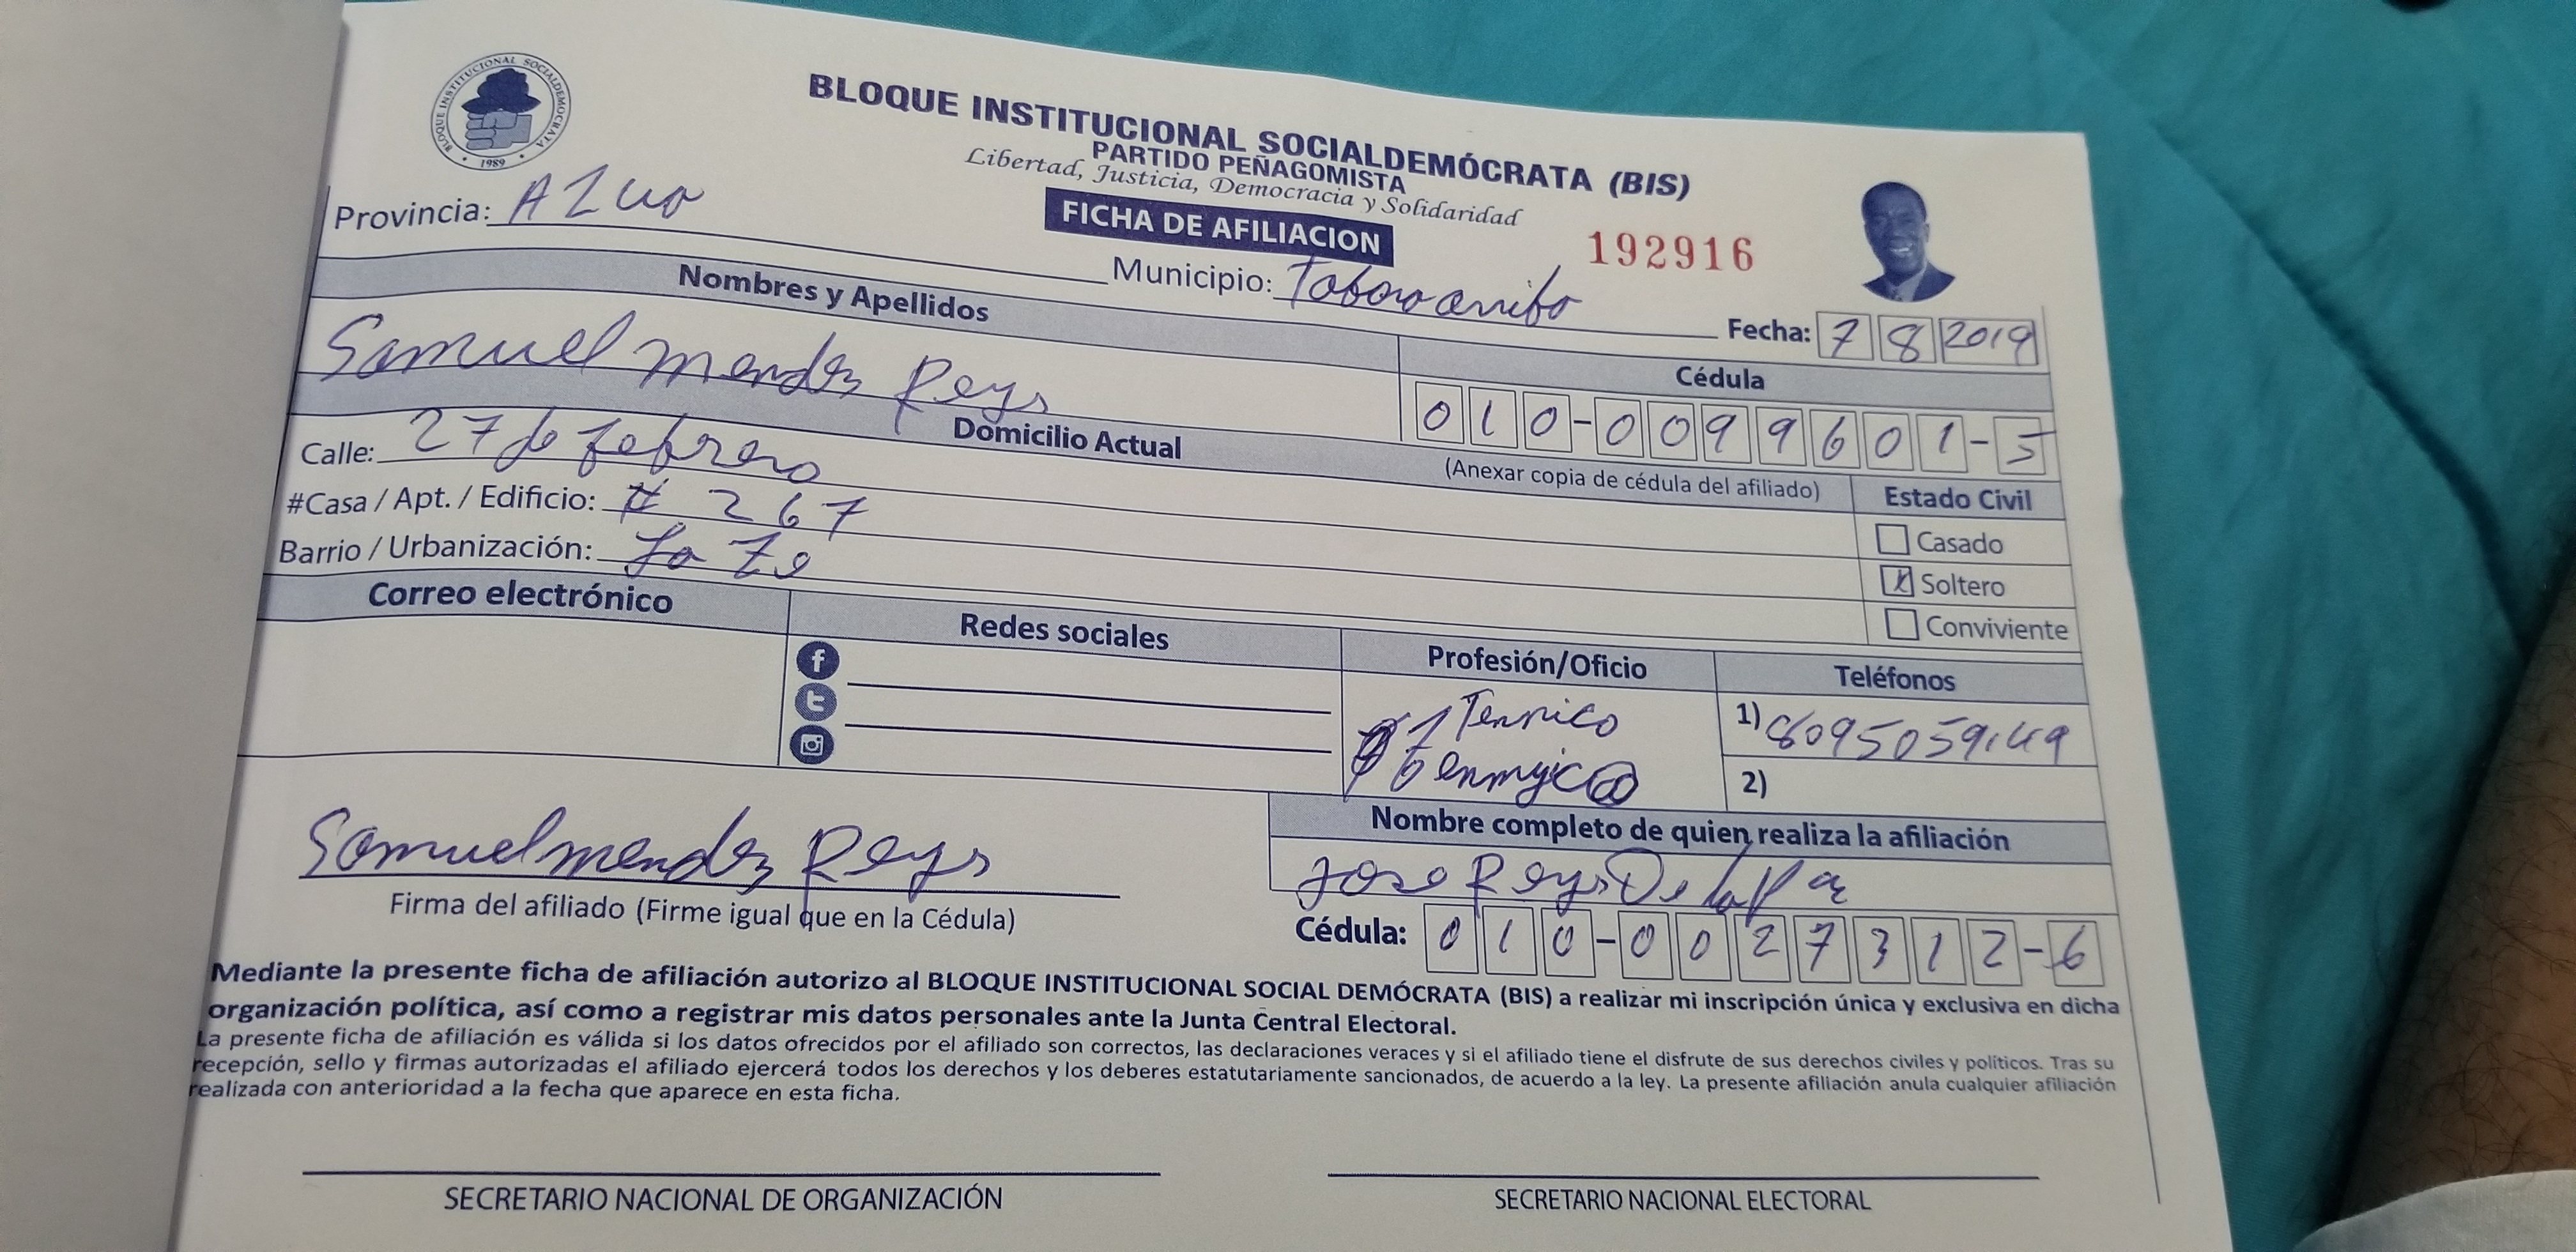 BLOQUE INSTITUCIONAL SOCIALDEMOCRATA
1989
BLOQUE INSTITUCIONAL SOCIALDEMÓCRATA (BIS)
PARTIDO PEÑAGOMISTA
Libertad, Justicia, Democracia y Solidaridad
FICHA DE AFILIACION
192916
Provincia: AZua
Municipio: Tabara arriba
Fecha: 7 8 2019
Nombres y Apellidos
Samuel mendez Reys
Cédula
010-0099601-5
(Anexar copia de cédula del afiliado)
Domicilio Actual
Calle: 27 de febrero
#Casa / Apt. / Edificio: # 267
Barrio / Urbanización:
Estado Civil
Casado
X Soltero
Conviviente
Correo electrónico
Redes sociales
Profesión/Oficio
Teléfonos
1)
2)
Samuel mendez Reys
Firma del afiliado (Firme igual que en la Cédula)
Nombre completo de quien realiza la afiliación
Jose Reys De la Paz
Cédula: 010-0027312-6
Mediante la presente ficha de afiliación autorizo al BLOQUE INSTITUCIONAL SOCIAL DEMÓCRATA (BIS) a realizar mi inscripción única y exclusiva en dicha
organización política, así como a registrar mis datos personales ante la Junta Central Electoral.
La presente ficha de afiliación es válida si los datos ofrecidos por el afiliado son correctos, las declaraciones veraces y si el afiliado tiene el disfrute de sus derechos civiles y políticos. Tras su
recepción, sello y firmas autorizadas el afiliado ejercerá todos los derechos y los deberes estatutariamente sancionados, de acuerdo a la ley. La presente afiliación anula cualquier afiliación
realizada con anterioridad a la fecha que aparece en esta ficha.
SECRETARIO NACIONAL DE ORGANIZACIÓN
SECRETARIO NACIONAL ELECTORAL